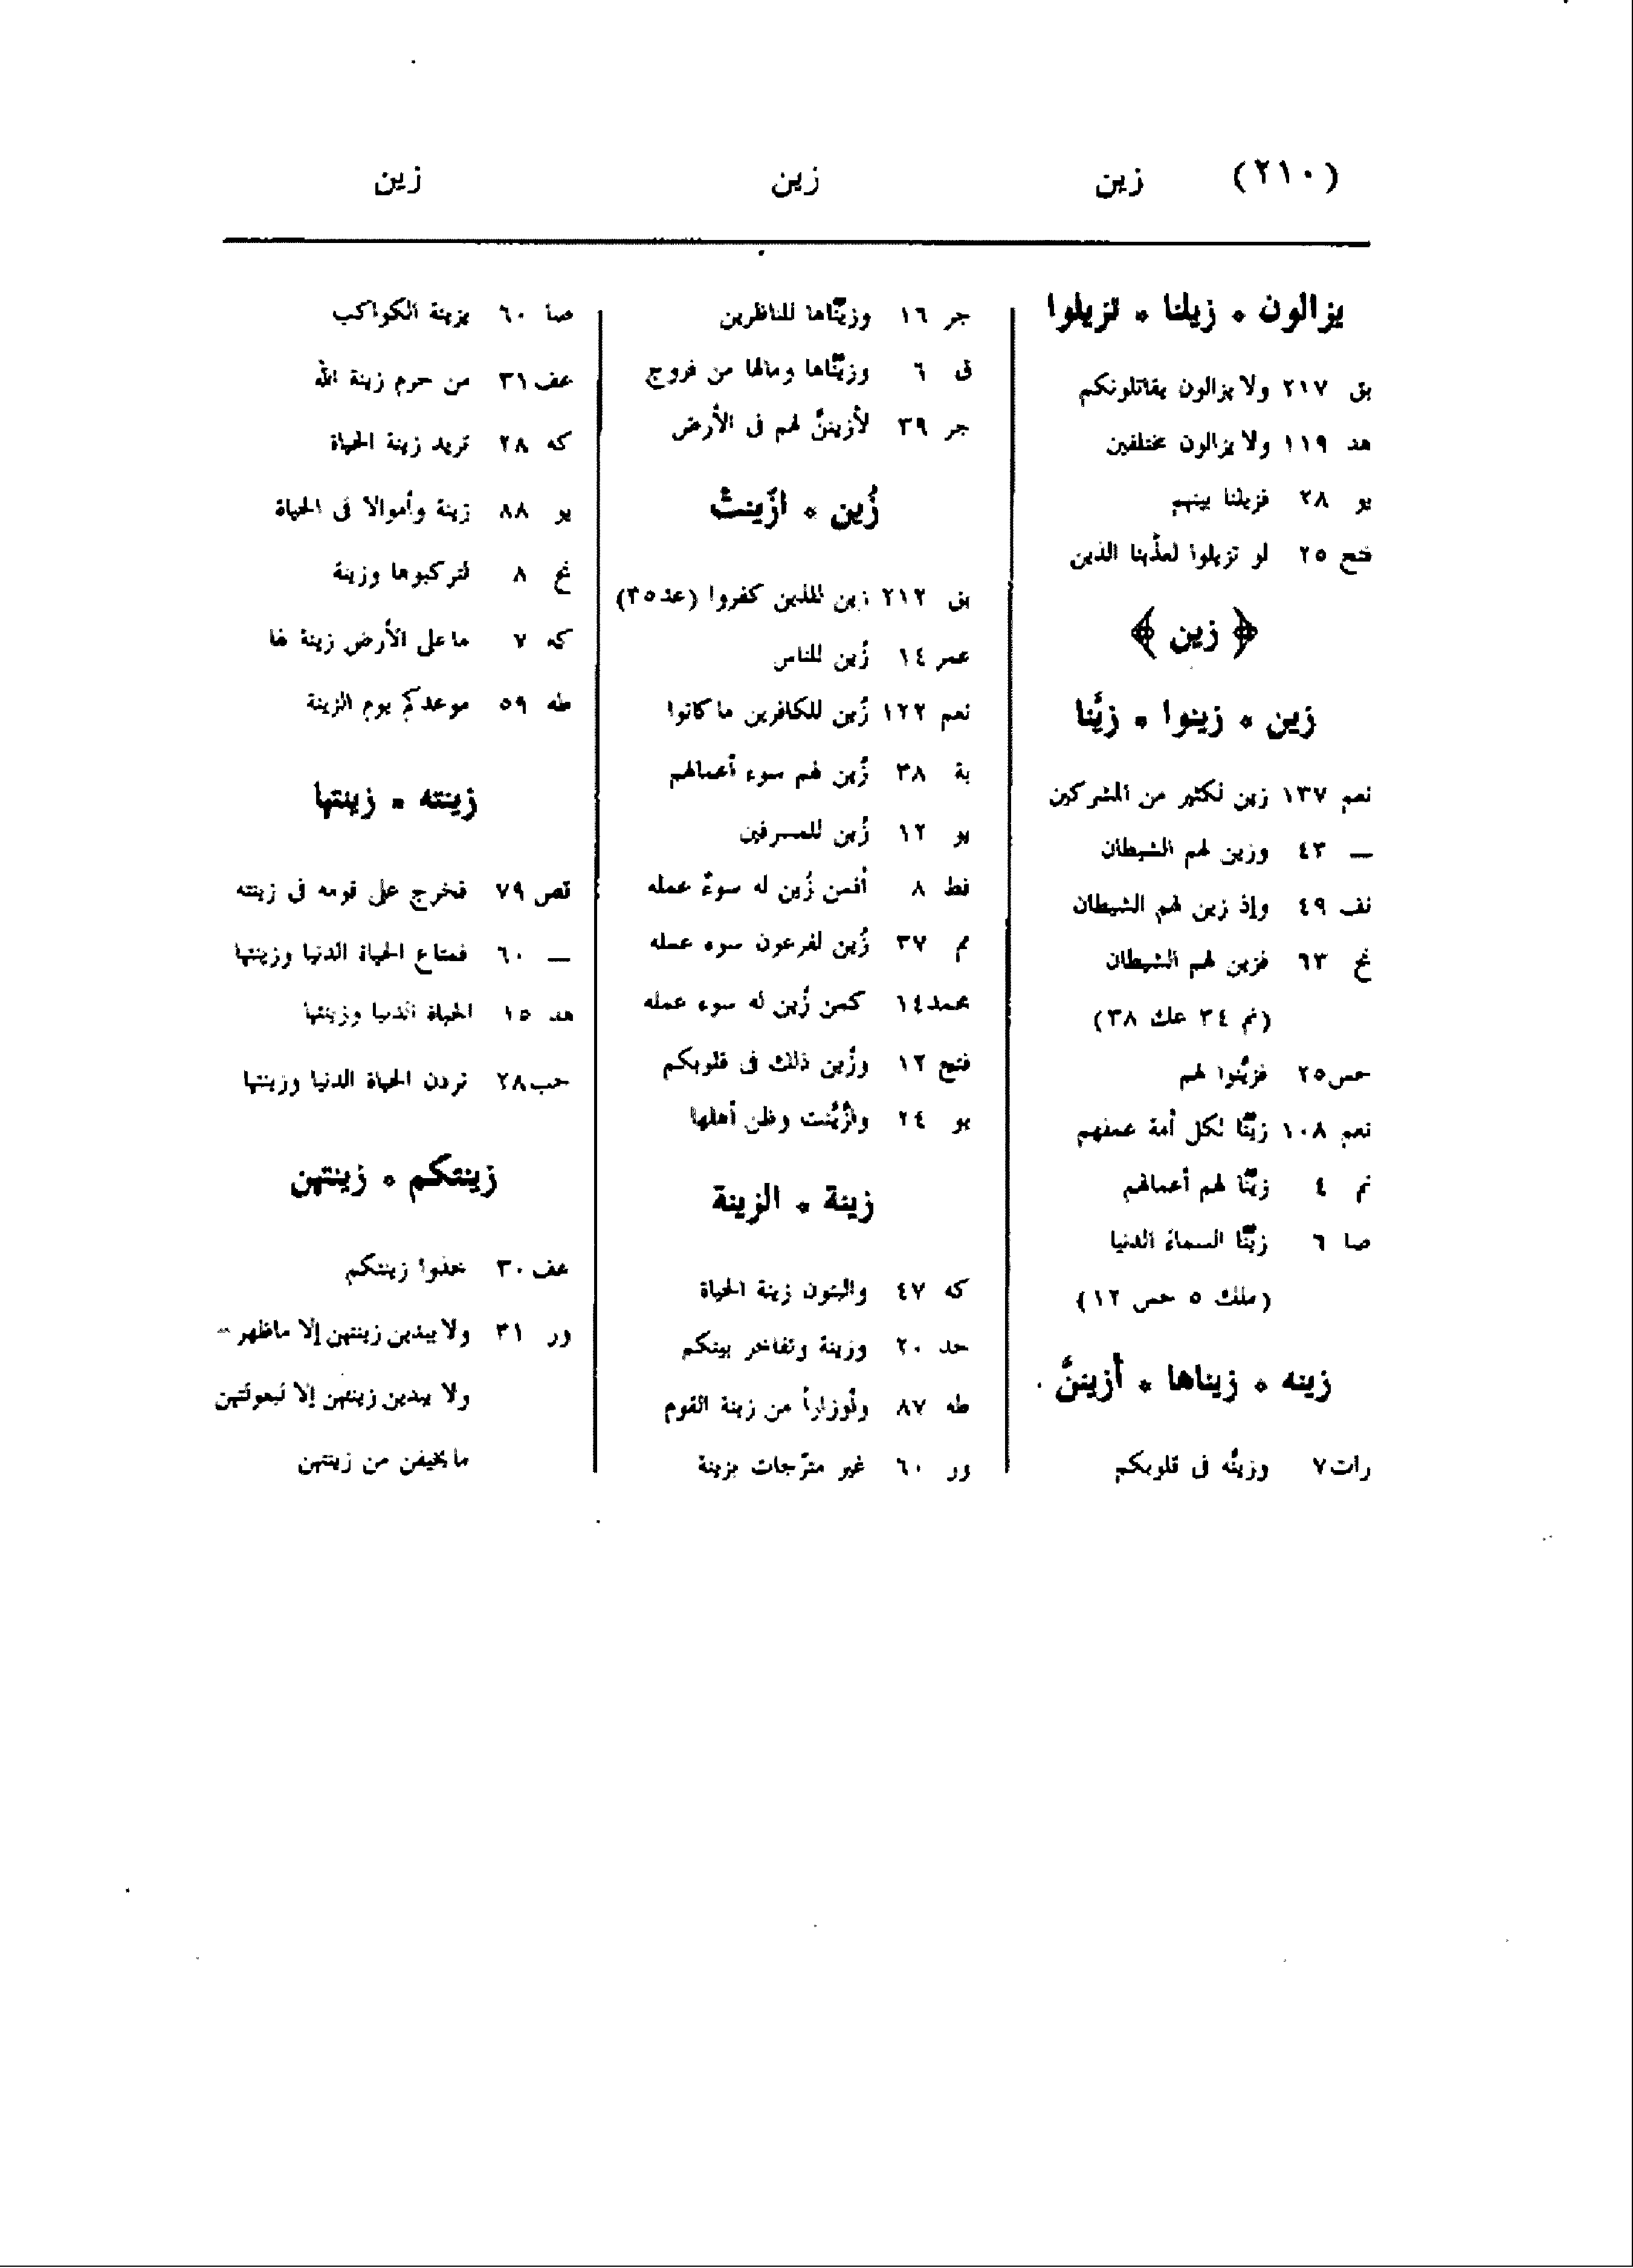 (٢١٠) زين زين زين
يزالون * زيلنا * تزيلوا
بق ٢١٧ ولا يزالون يقاتلونكم
هد ١١٩ ولا يزالون مختلفين
يو ٢٨ فزيلنا بينهم
فتح ٢٥ لو تزيلوا لعذّبنا الذين
﴿ زين ﴾
زين * زينوا * زيَّنا
نعم ١٣٧ زين لكثير من المشركين
— ٤٣ وزين لهم الشيطان
نف ٤٩ وإذ زين لهم الشيطان
نح ٦٣ فزين لهم الشيطان
(نم ٢٤ عك ٣٨)
حس٢٥ فزيَّنوا لهم
نعم ١٠٨ زيّنّا لكل أمة عملهم
نم ٤ زيّنّا لهم أعمالهم
صا ٦ زيّنّا السماء الدنيا
(ملك ٥ حس ١٢)
زينه * زيناها * أزيننَّ
رات٧ وزيّنه فى قلوبكم
جر ١٦ وزيّنّاها للناظرين
ق ٦ وزيّنّاها ومالها من فروج
جر ٣٩ لأزيننَّ لهم فى الأرض
زُين * ازّينتْ
بق ٢١٢ زين للذين كفروا (عد٣٥)
عمر ١٤ زُين للناس
نعم ١٢٢ زُين للكافرين ما كانوا
بة ٣٨ زُين لهم سوء أعمالهم
يو ١٢ زُين للمسرفين
فط ٨ أفمن زُين له سوءُ عمله
مم ٣٧ زُين لفرعون سوء عمله
محمد١٤ كمن زُين له سوء عمله
فتح ١٢ وزُين ذلك فى قلوبكم
يو ٢٤ وازَّيَّنت وظن أهلها
زينة * الزينة
كه ٤٧ والبنون زينة الحياة
حد ٢٠ وزينة وتفاخر بينكم
طه ٨٧ أوزاراً من زينة القوم
ور ٦٠ غير متبرّجات بزينة
صا ٦٠ بزينة الكواكب
عف ٣١ من حرم زينة الله
كه ٢٨ تريد زينة الحياة
يو ٨٨ زينة وأموالا فى الحياة
نح ٨ لتركبوها وزينة
كه ٧ ماعلى الأرض زينة لها
طه ٥٩ موعدكم يوم الزينة
زينته * زينتها
قص ٧٩ فخرج على قومه فى زينته
— ٦٠ فمتاع الحياة الدنيا وزينتها
هد ١٥ الحياة الدنيا وزينتها
حب٢٨ تردن الحياة الدنيا وزينتها
زينتكم * زينتهن
عف ٣٠ خذوا زينتكم
ور ٣١ ولا يبدين زينتهن إلا ماظهر —
ولا يبدين زينتهن إلا لبعولتهن
ما يخفين من زينتهن